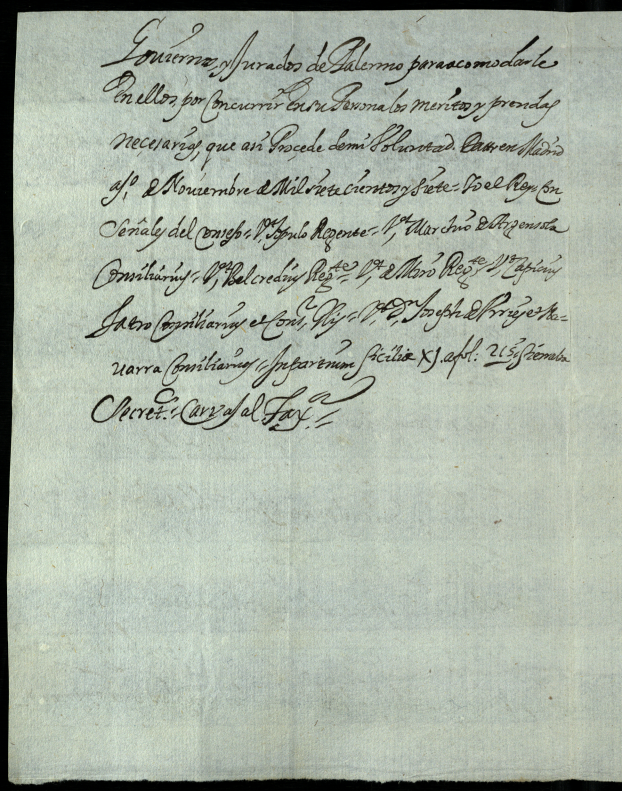 Govierno, y Jurados de Palermo para acomodarle
En ellos, por Concurrir En su Persona los meritos y prendas
necesarias, que asi Procede de mi Voluntad. Datt en Madrid
a 1º de Noviembre de Mil siete cientos y siete = Yo el Rey Con
Señales del Consejo = Vt Populo Regente = Vt Marchio de Argensola
Consiliarius = Vt Belcredius Regte = Vt de Moro Regte = Vt
Consiliarius et Cons Glis = Vt Dn Joseph de et Na-
varra Consiliarius = In partium Siciliæ XI. a fol: 215
Secret = Carvajal